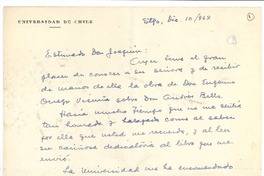 UNIVERSIDAD DE CHILE
Stgo, Dic. 10/968
Estimado Don Joaquín:
Ayer tuve el gran
placer de conocer a su señora y de recibir
de manos de ella la obra de Don Eugenio
Orrego Vicuña sobre Don Andrés Bello.
Hacía mucho tiempo que no me sentía
tan honrado y halagado como al saber
por ella que usted me recuerda, y al leer
su cariñosa dedicatoria al libro que me
envió.
La Universidad me ha encomendado